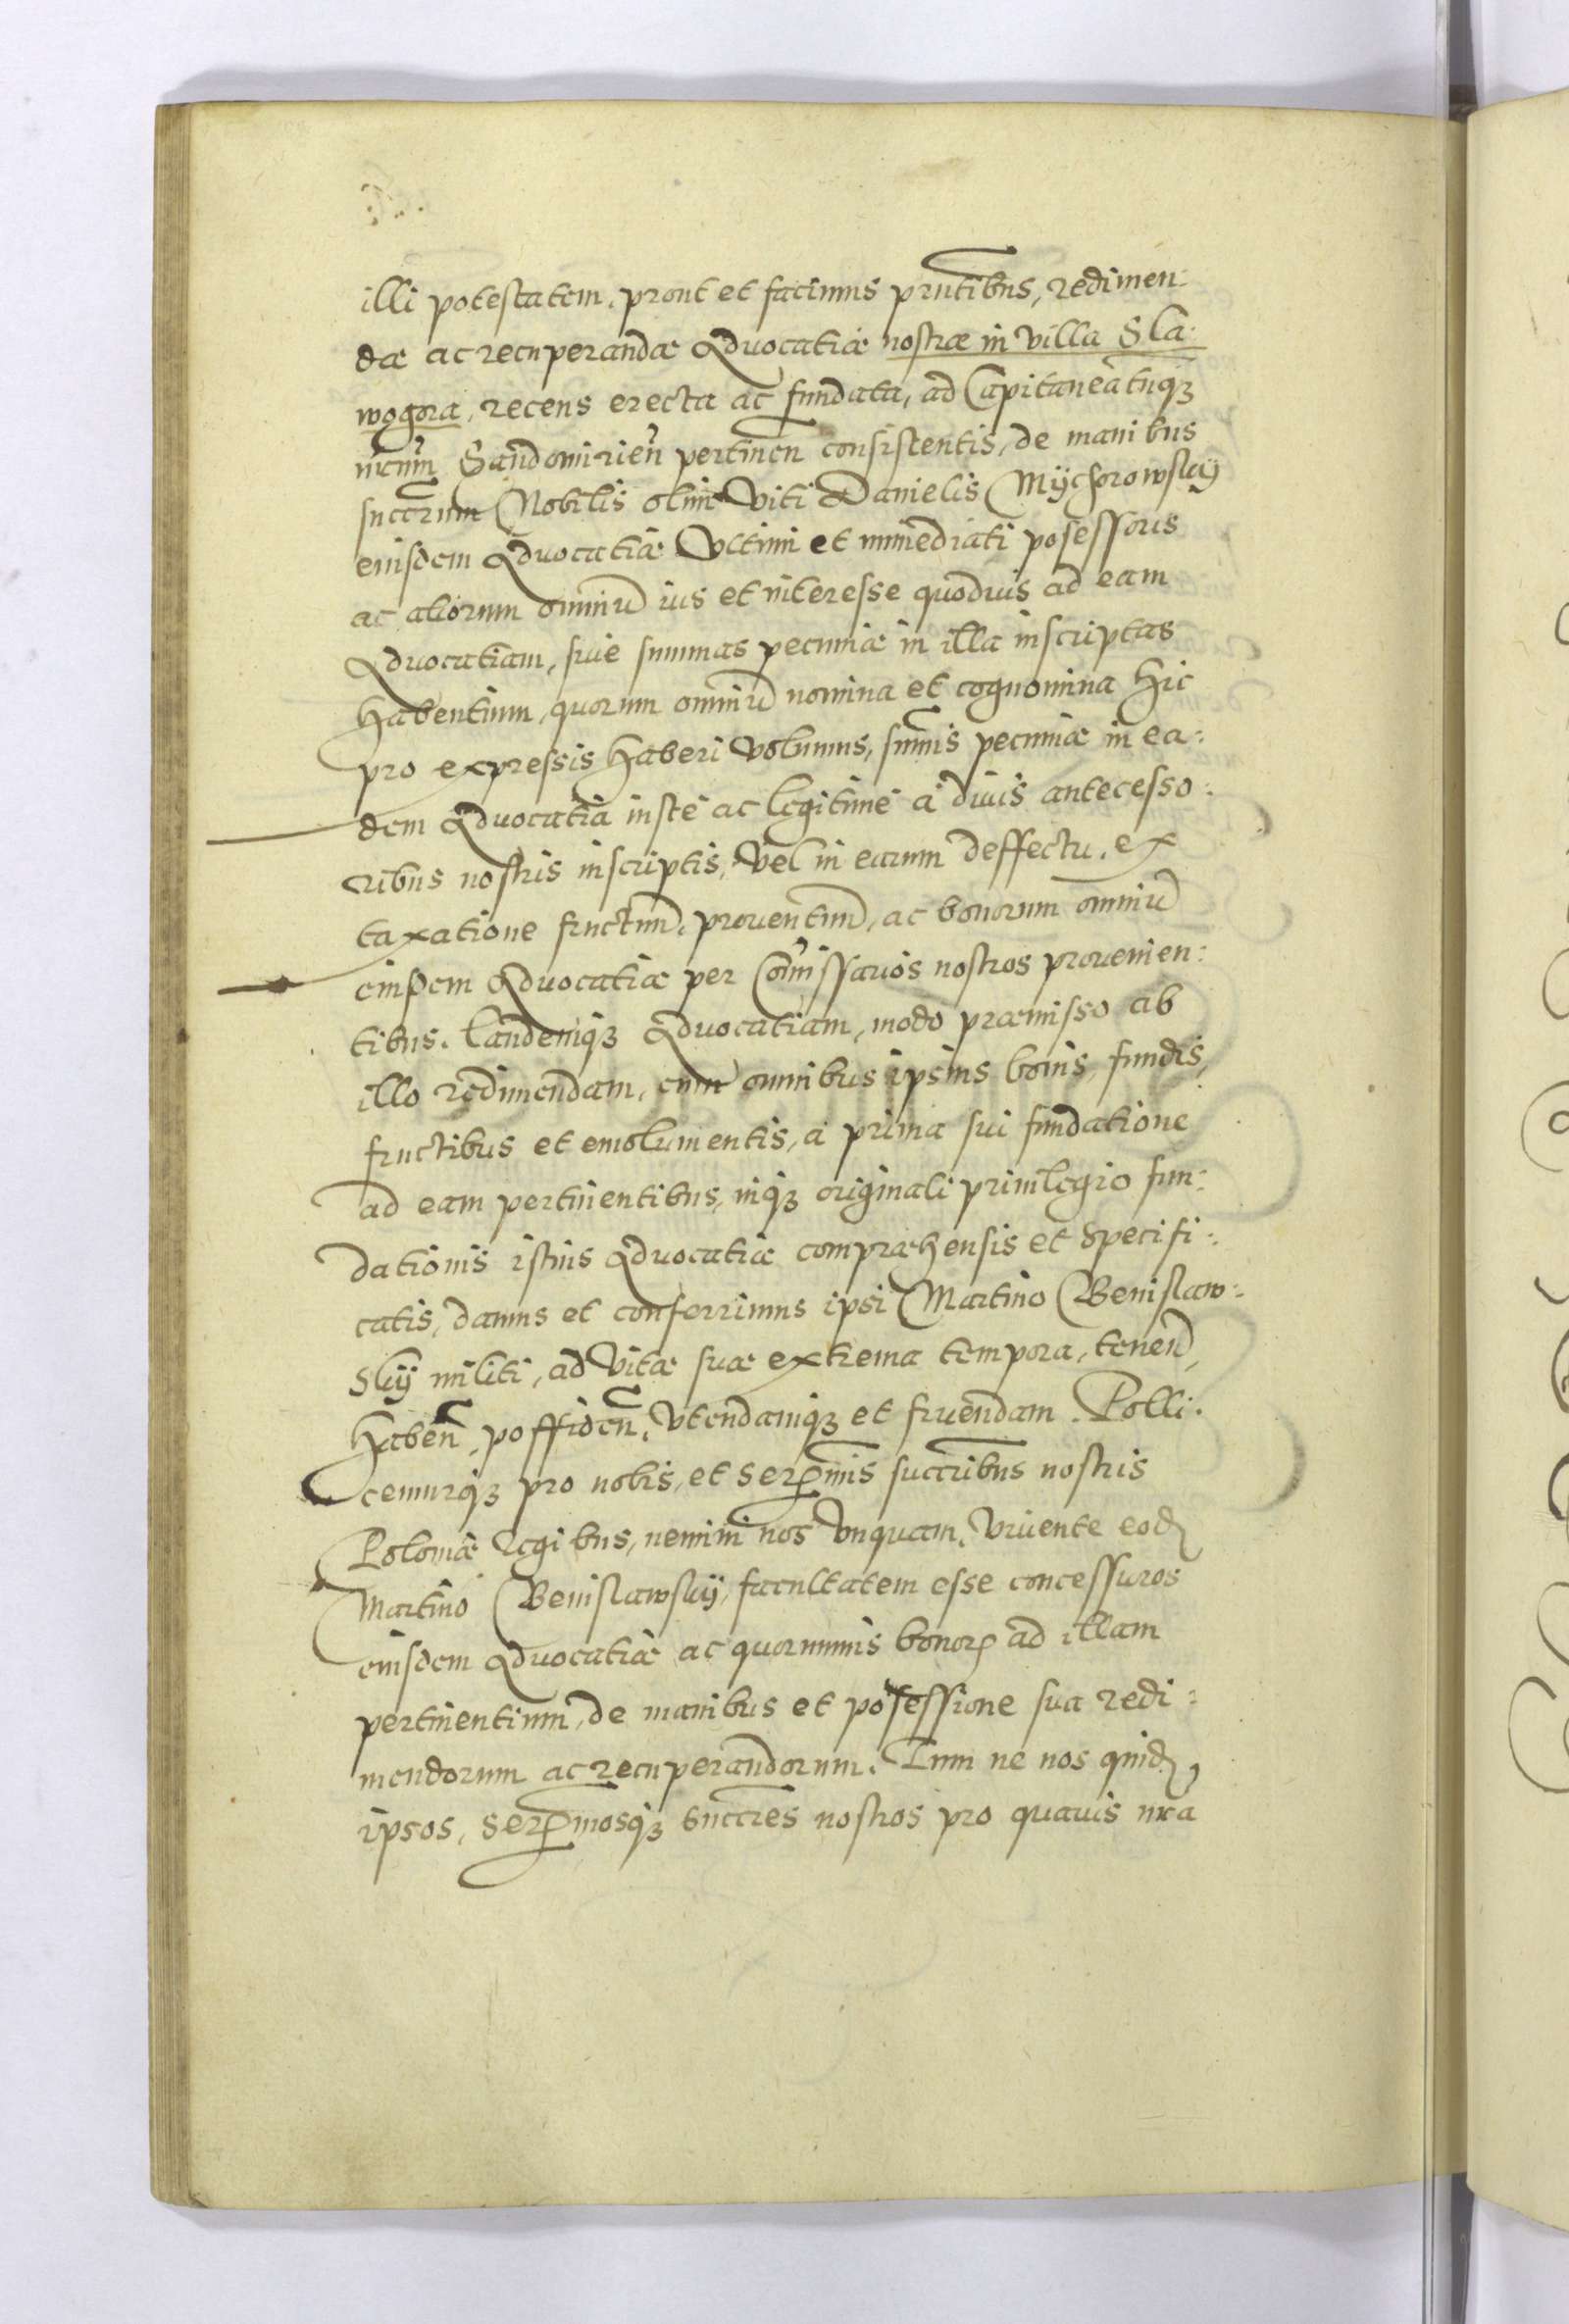 illi potestatem, prout et facimus pñtibus, redimen-
dæ ac recuperandæ Advocatiæ nostræ in villa Sla-
wogora, recens erecta ac fundata, ad Capitaneatuq3
nr̃um Sandomirien̄ pertinen̄ consistentis, de manibus
succr̄um Nobilis olim Viti Danielis Mÿchorowskÿ
eiusdem Advocatiæ Vltimi et immediati posessoris
ac aliorum omniū ius et interesse quoduis ad eam
Advocatiam, siue summas pecuniæ in illa inscriptas
habentium, quorum omniū nomina et cognomina hic
pro expressis haberi volumus, sum̄is pecuniæ in ea-
dem Advocatia iustè ac legitimè à diuis antecesso-
ribus nostris inscriptis, vel in earum deffectu, ex
taxatione fructuū, prouentuū, ac bonorum omniū
eiusdem Advocatiæ per Com̄issarios nostros prouenien-
tibus. Eandemq3 Advocatiam, modo præmisso ab
illo redimendam, cum omnibus ipsius bonis, fundis,
fructibus et emolumentis, a prima sui fundatione
ad eam pertinentibus, inq3 originali priuilegio fun-
dationis istius Advocatiæ compræhensis et specifi-
catis, damus et conferrimus ipsi Martino Benislaw-
skÿ militi, ad vitæ suæ extrema tempora, tenen̄d,
haben̄, possiden̄, vtendamq3 et fruendam. Polli-
cemurq3 pro nobis, et Serm̄is succr̄ibus nostris
Poloniæ regibus, nemini nos vnquam, viuente eod̄
Martino Benislawskÿ, facultatem esse concessuros
eiusdem Advocatiæ ac quorumuis bonor̄ ad illam
pertinentium, de manibus et posessione sua redi-
mendorum ac recuperandorum. Tum ne nos quid̄,
ipsos, Serm̄osq3 succr̄es nostros pro quauis nr̄a